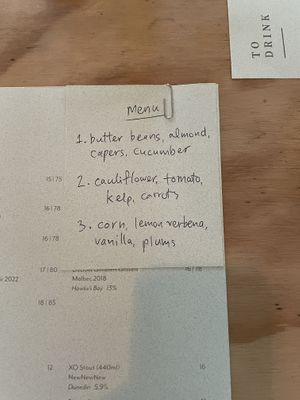 TO
DRINK
Menu
1. butter beans, almond,
capers, cucumber
2. cauliflower, tomato,
kelp, carrots
3. corn, lemon verbena,
vanilla, plums
15 | 75
16 | 78
16 | 78
17 | 80
Malbec 2018
Hawke's Bay 13%
2022
18 | 85
12 XO Stout (440ml) 16
NewNewNew
Dunedin 5.9%